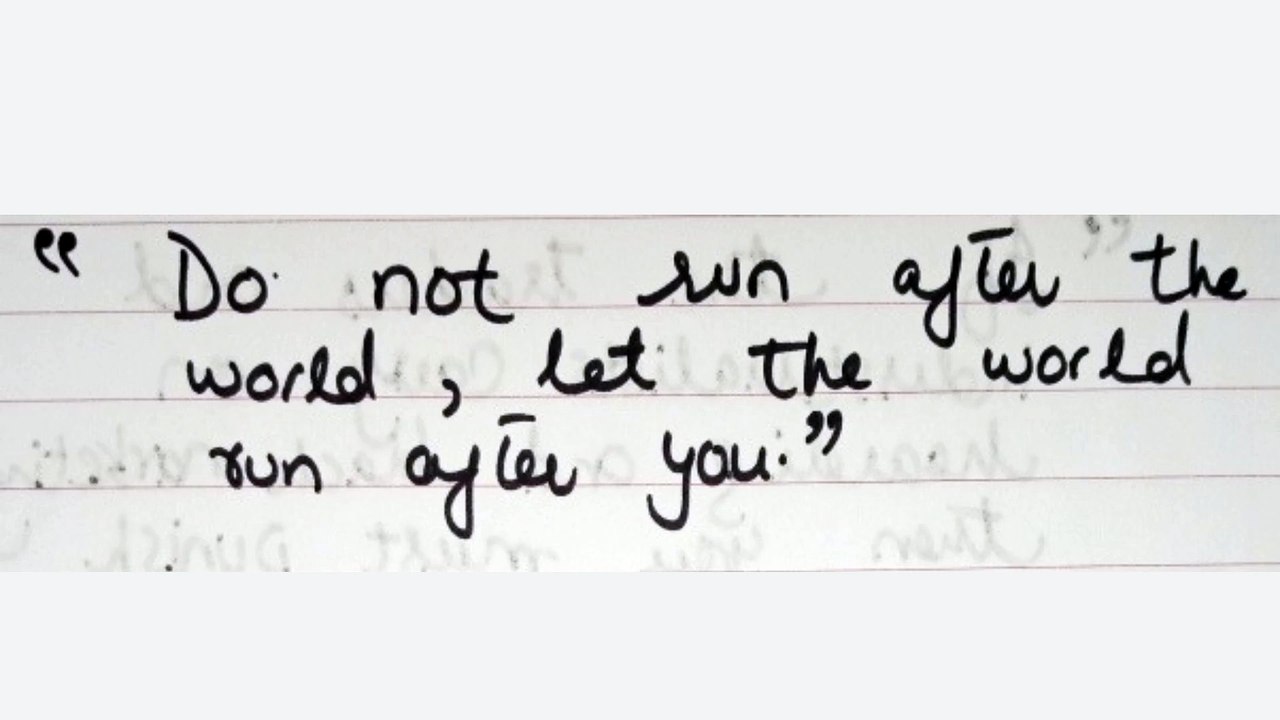 “ Do not run after the
world, let the world
run after you.”